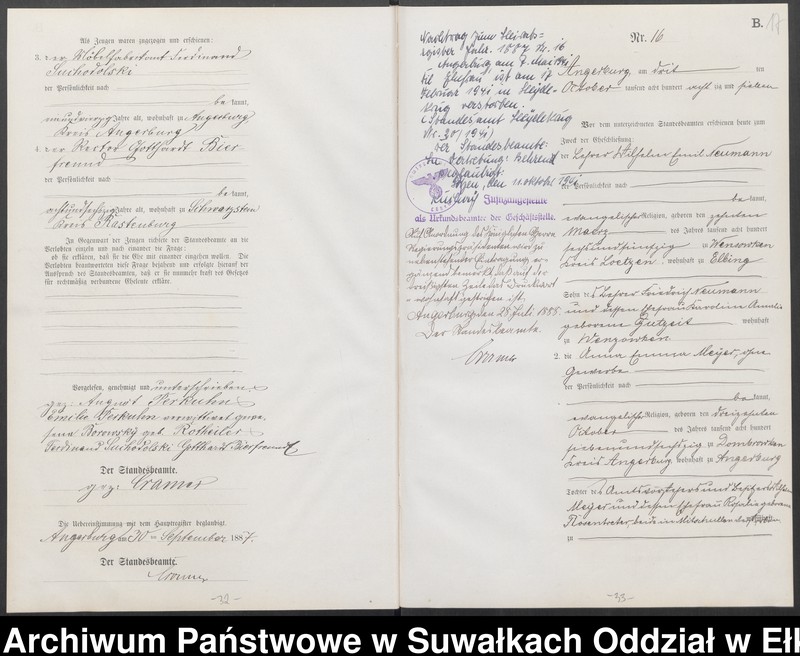 Als Zeugen waren zugezogen und erschienen:
3. der Möbelfabrikant Ferdinand
Suchodolski
der Persönlichkeit nach
be kannt,
Jahre alt, wohnhaft zu Angerburg
Kreis Angerburg
4. der Rector Gotthardt Bier-
freund
der Persönlichkeit nach
be kannt,
achtundsechzig Jahre alt, wohnhaft zu Schwarzstein
Kreis Rastenburg
In Gegenwart der Zeugen richtete der Standesbeamte an die
Verlobten einzeln und nach einander die Frage:
ob sie erklären, daß sie die Ehe mit einander eingehen wollen. Die
Verlobten beantworteten diese Frage bejahend und erfolgte hierauf der
Ausspruch des Standesbeamten, daß er sie nunmehr kraft des Gesetzes
für rechtmäßig verbundene Eheleute erkläre.
Vorgelesen, genehmigt und unterschrieben
gez: August Perkuhn
Emilie Perkuhn verwittwet gewe-
sene Borowsky geb. Rotheiler
Ferdinand Suchodolski Gotthardt Bierfreund
Der Standesbeamte.
gez: Cramer
Die Uebereinstimmung mit dem Hauptregister beglaubigt.
Angerburg am 30ten September 1887.
Der Standesbeamte.
Cramer
-32-
B. 17
Nr. 16
Nachtrag zum Heirats-
register Jahr 1887 Nr. 16
Angerburg am 7. Mai 1941
Ehefrau ist am 17.
Februar 1941 in Heyde-
krug verstorben.
(Standesamt Heydekrug
Nr. 30/1941)
Der Standesbeamte:
In Vertretung: Behrend
Beglaubigt:
Lötzen, den 11. Oktober 1941
Justizangestellte
als Urkundsbeamter der Geschäftsstelle.
Auf Anordnung des Königlichen Herrn
Regierungspräsidenten wird zu
nebenstehender Eintragung er-
gänzend bemerkt, daß auf der
dreißigsten Zeile das Druckwort
wohnhaft gestrichen ist.
Angerburg den 28 Juli 1888.
Der Standesbeamte.
Cramer
Angerburg am drit ten
October tausend acht hundert acht zig und sieben
Vor dem unterzeichneten Standesbeamten erschienen heute zum
Zweck der Eheschließung:
der Lehrer Wilhelm Emil Neumann
der Persönlichkeit nach
be kannt,
evangelischer Religion, geboren den zehnten
Maerz des Jahres tausend acht hundert
sechsundfünfzig zu Wensowken
Kreis Loetzen, wohnhaft zu Elbing
Sohn des Lehrer Friedrich Neumann
und dessen Ehefrau Karoline Amalie
geborene Gutzeit wohnhaft
zu Wenzowken
2. die Anna Emma Meyer, ohne
Gewerbe
der Persönlichkeit nach
be kannt,
evangelischer Religion, geboren den dreizehnten
October des Jahres tausend acht hundert
siebenundsechzig zu Dombrowken
Kreis Angerburg, wohnhaft zu Angerburg
Tochter des Amtsvorstehers und Besitzers
Meyer und dessen Ehefrau Rosalie geborene
Rosentreter, beide in
zu
-33-
Archiwum Państwowe w Suwałkach Oddział w Ełk